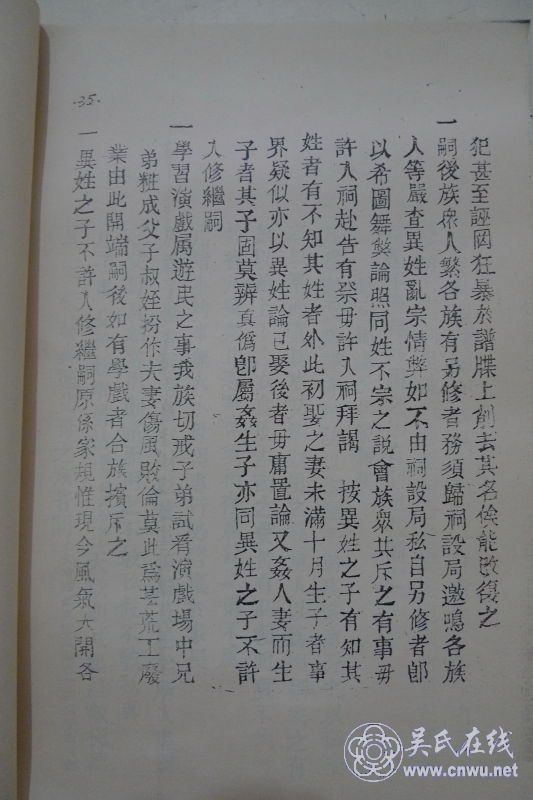 犯甚至誣罔狂暴於譜牒上削去其名俟能改復之
一嗣後族衆人繁各族有另修者務須歸祠設局邀鳴各族
人等嚴查異姓亂宗情弊如不由祠設局私自另修者即
以希圖舞獘論照同姓不宗之說會族衆共斥之有事毋
許入祠赴告有祭毋許入祠拜謁 按異姓之子有知其
姓者有不知其姓者外此初娶之妻未滿十月生子者事
界疑似亦以異姓論已娶後者毋庸置論又姦人妻而生
子者其子固莫辨真偽卽屬姦生子亦同異姓之子不許
入修繼嗣
一學習演戲屬遊民之事我族切戒子弟試看演戲場中兄
弟粧成父子叔姪扮作夫妻傷風敗倫莫此爲甚荒工廢
業由此開端嗣後如有學戲者合族擯斥之
一異姓之子不許入修繼嗣原係家規惟現今風氣大開各
.35.
吴氏在线
www.cnwu.net